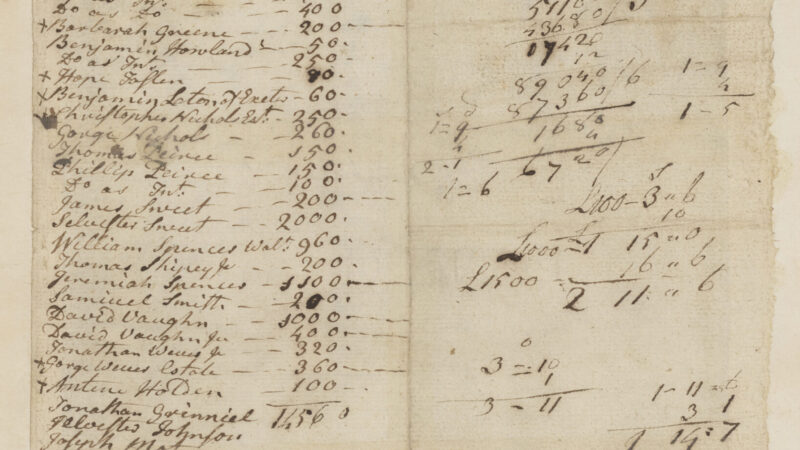 Do as Do — 400
+ Barbarah Greene — 200
Benjamin Howland — 50
Do as Int. — 250
+ Hope Teflen — 90
+ Benjamin Leton of Exeter — 60
+ Christopher Nichols Est. — 250
Gorge Nichols — 260
Thomas Peirce — 150
Phillip Peirce — 150
Do as Int. — 100
James Sweet — 200
Selvester Sweet — 2000
William Spences Wal. 960
Thomas Shipey Jr — 200
Jeremiah Spences — 1100
Samiuel Smith — 200
David Vaughn — 1000
David Vaughn Jr — 400
Jonathan Weves Jr — 320
+ Gorge Weves Estate — 360
+ Antine Holden — 100
Jonathan Grinniel 14560
Silvester Johnson
Joseph
5110
43680
17420
12
89040/6
87360
1680
4
6720
1 = 9
4
1 - 5
1 = 9
2 - 1
1 = 6
£100 - 3 = 6
10
£1000 = 1 15 = 0
16 = 6
£1500 = 2 11 = 6
0
3 = 10
1
3 - 11
1 - 11 = 6
3 1